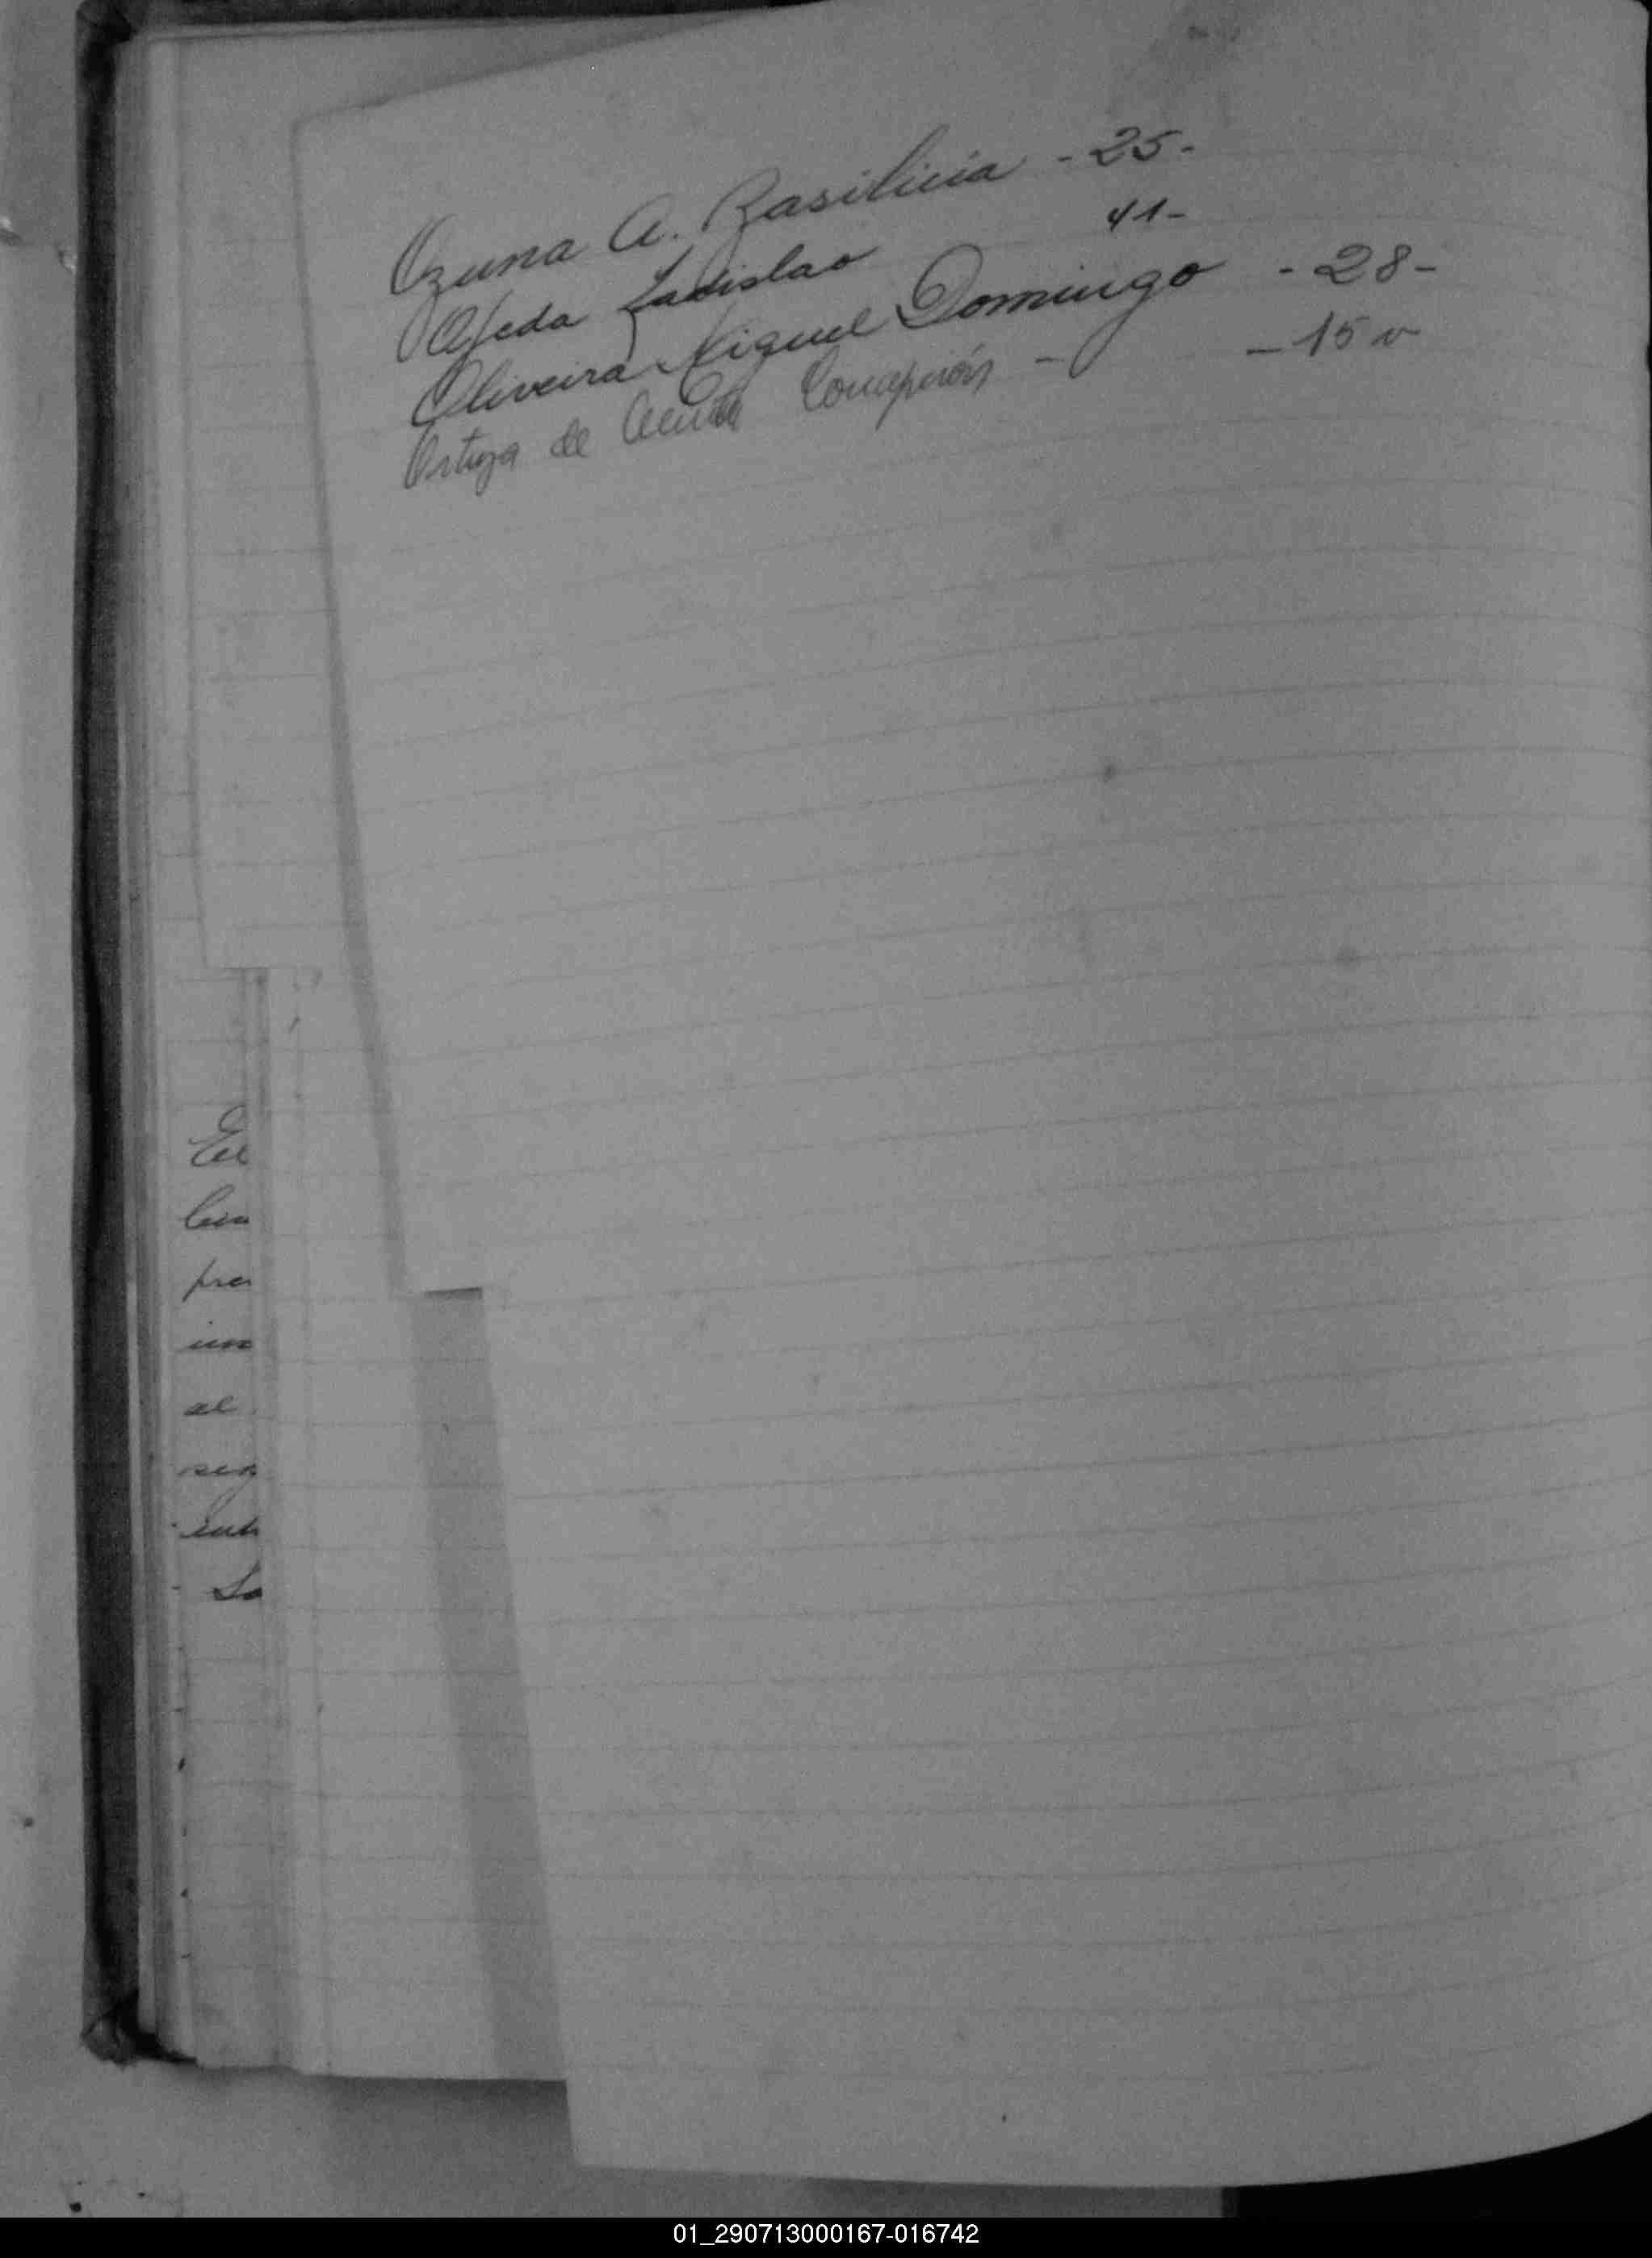 Ozuna A. Basilicia - 25 -
Ojeda Ladislao 41 -
Oliveira Miguel Domingo - 28 -
de Concepción - - 15 v
El
pra
un
al
seg
La
01_290713000167-016742